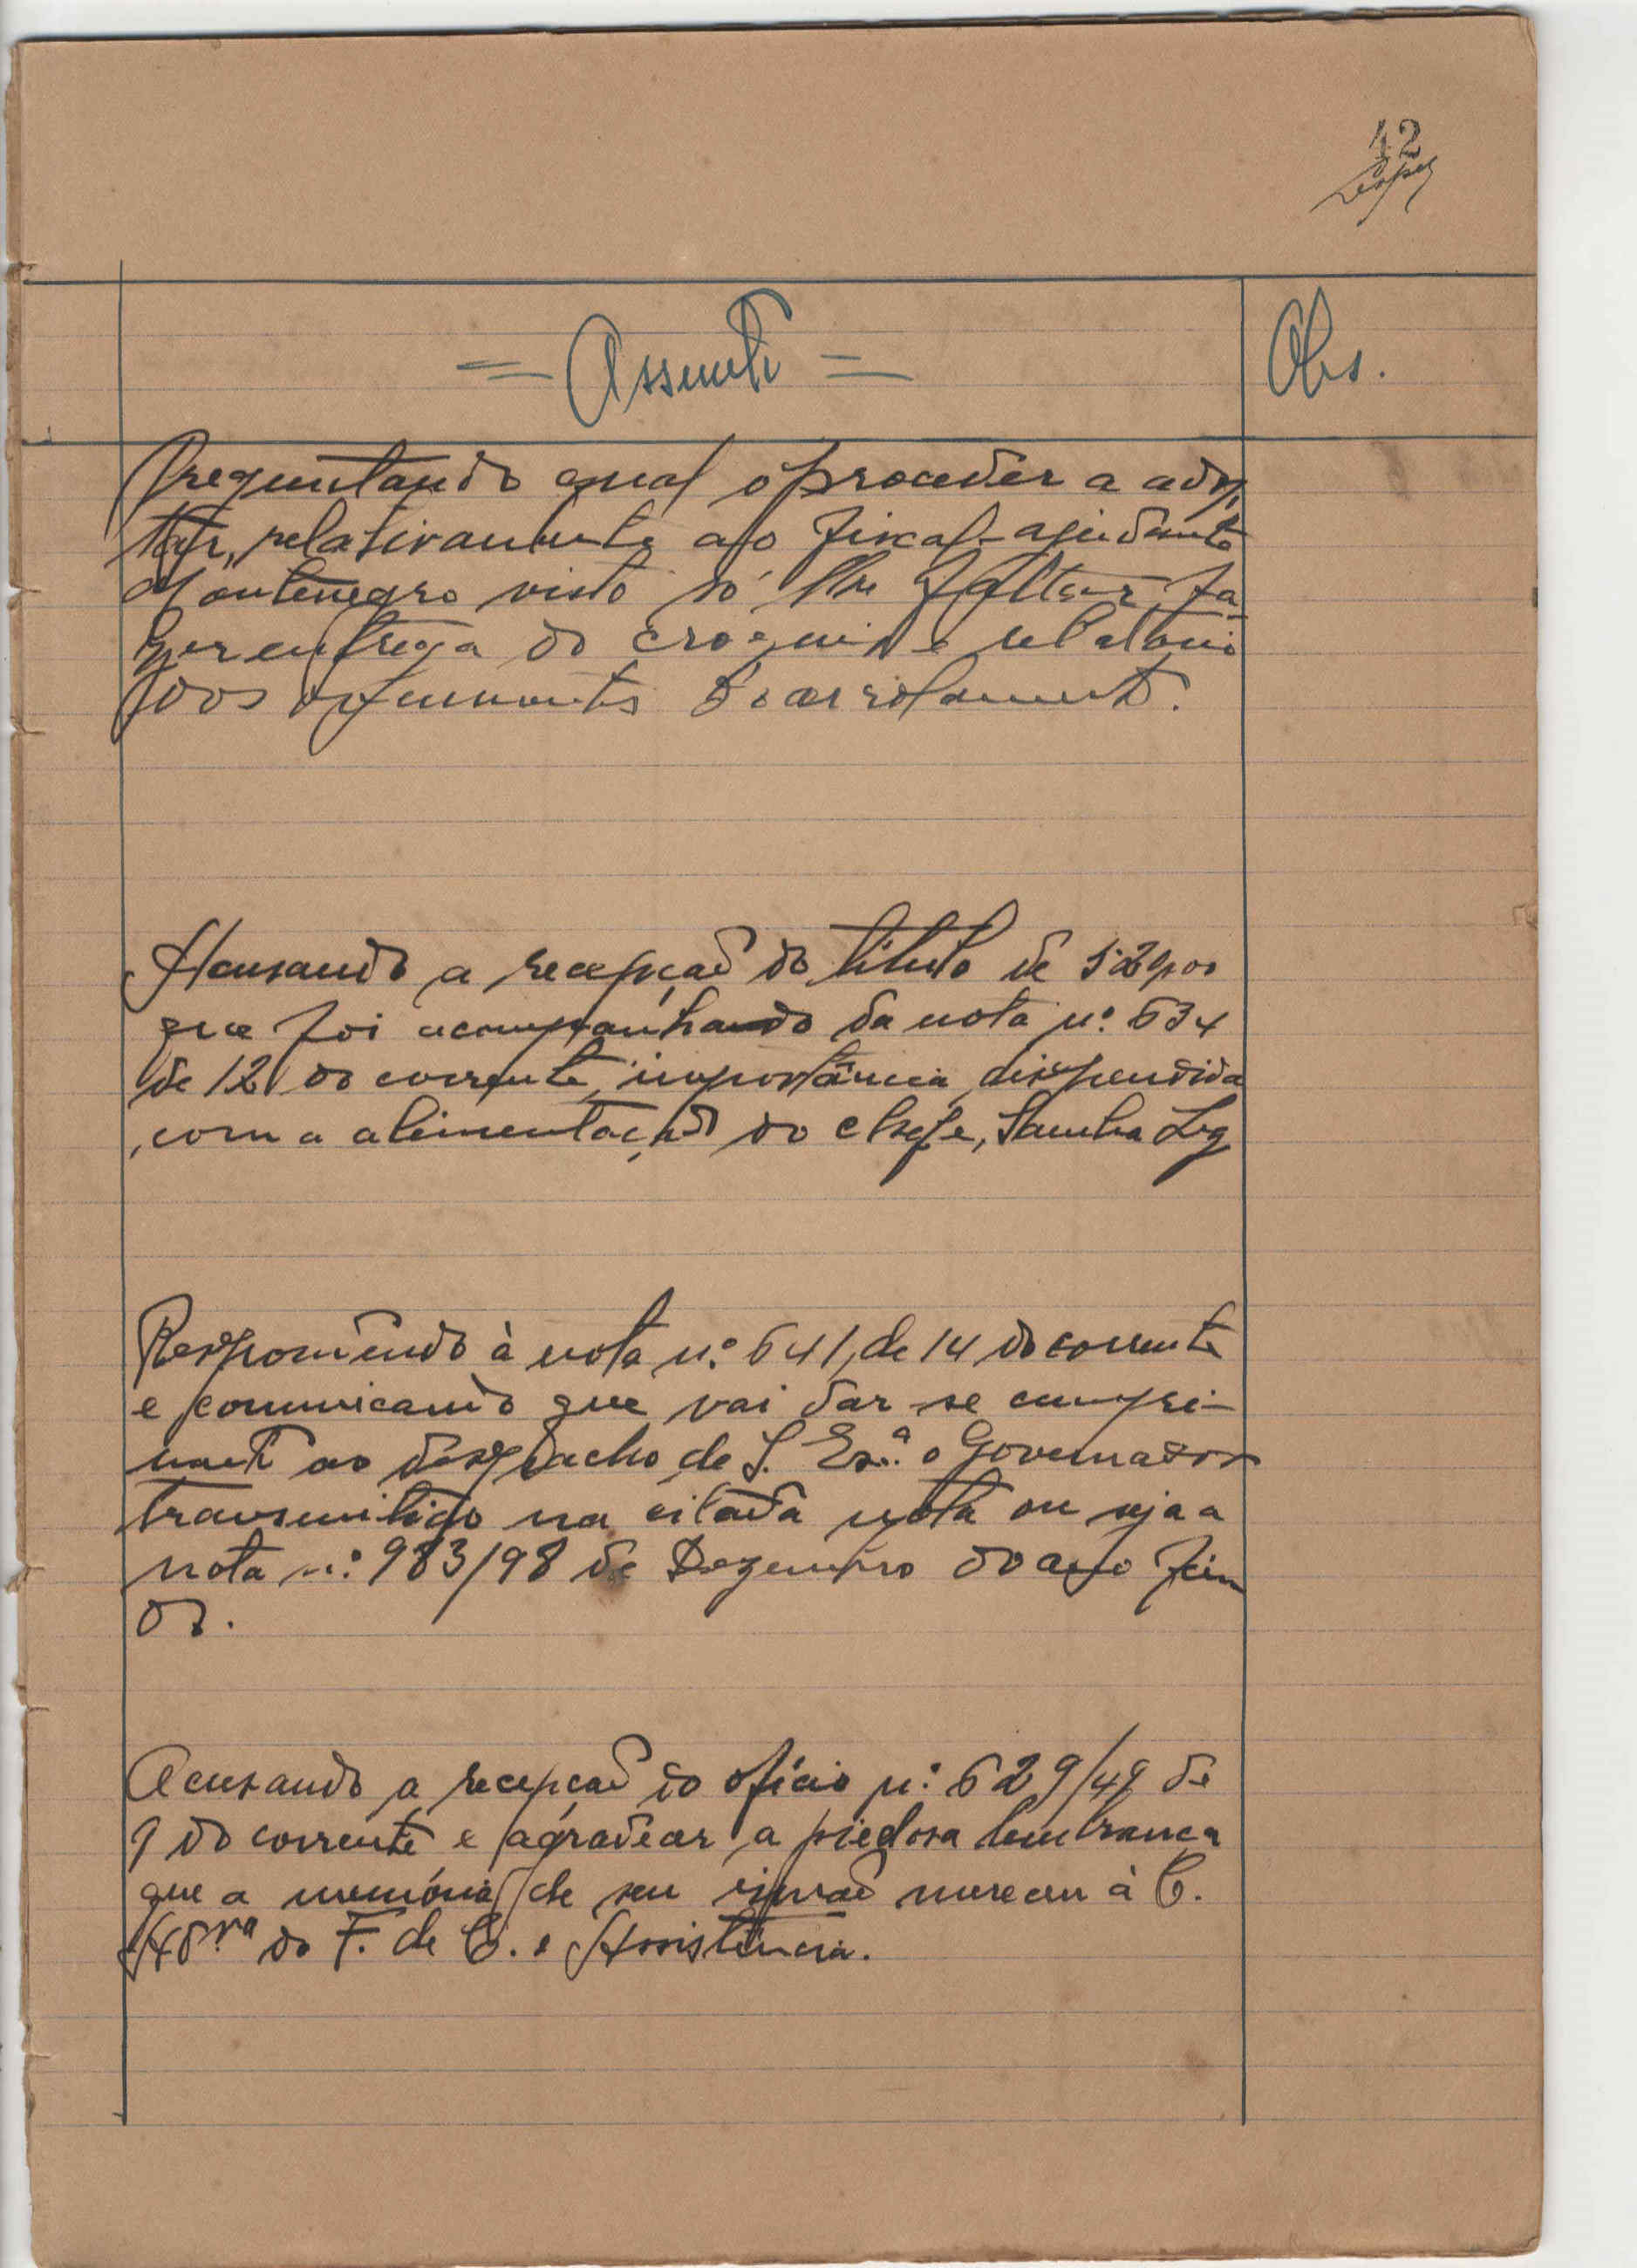 42
Lopes
= Assunto =
Obs.
Preguntando qual o proceder a adop
tar, relativamente ao fiscal-ajudante
Montenegro visto só lhe faltar fa
zer entrega do croquis e relatorio
dos do arrolamento.
Acusando a recepção do titulo de
que foi acompanhando da nota n.º 634
de 12 do corrente, importância dispendida
com a alimentação do chefe,
Respondendo à nota n.º 641, de 14 do corrente
e comunicando que vai dar se cumpri-
mento ao despacho de S. Ex.ª o Governador
transmitido na citada nota ou seja a
nota n.º 983/98 de Dezembro do ano fin
do.
Acusando a recepção do ofício n.º 629/49 de
9 do corrente e agradecer a piedosa lembrança
que a memória de seu irmão mereceu à C.
do F. de C. e Assistência.